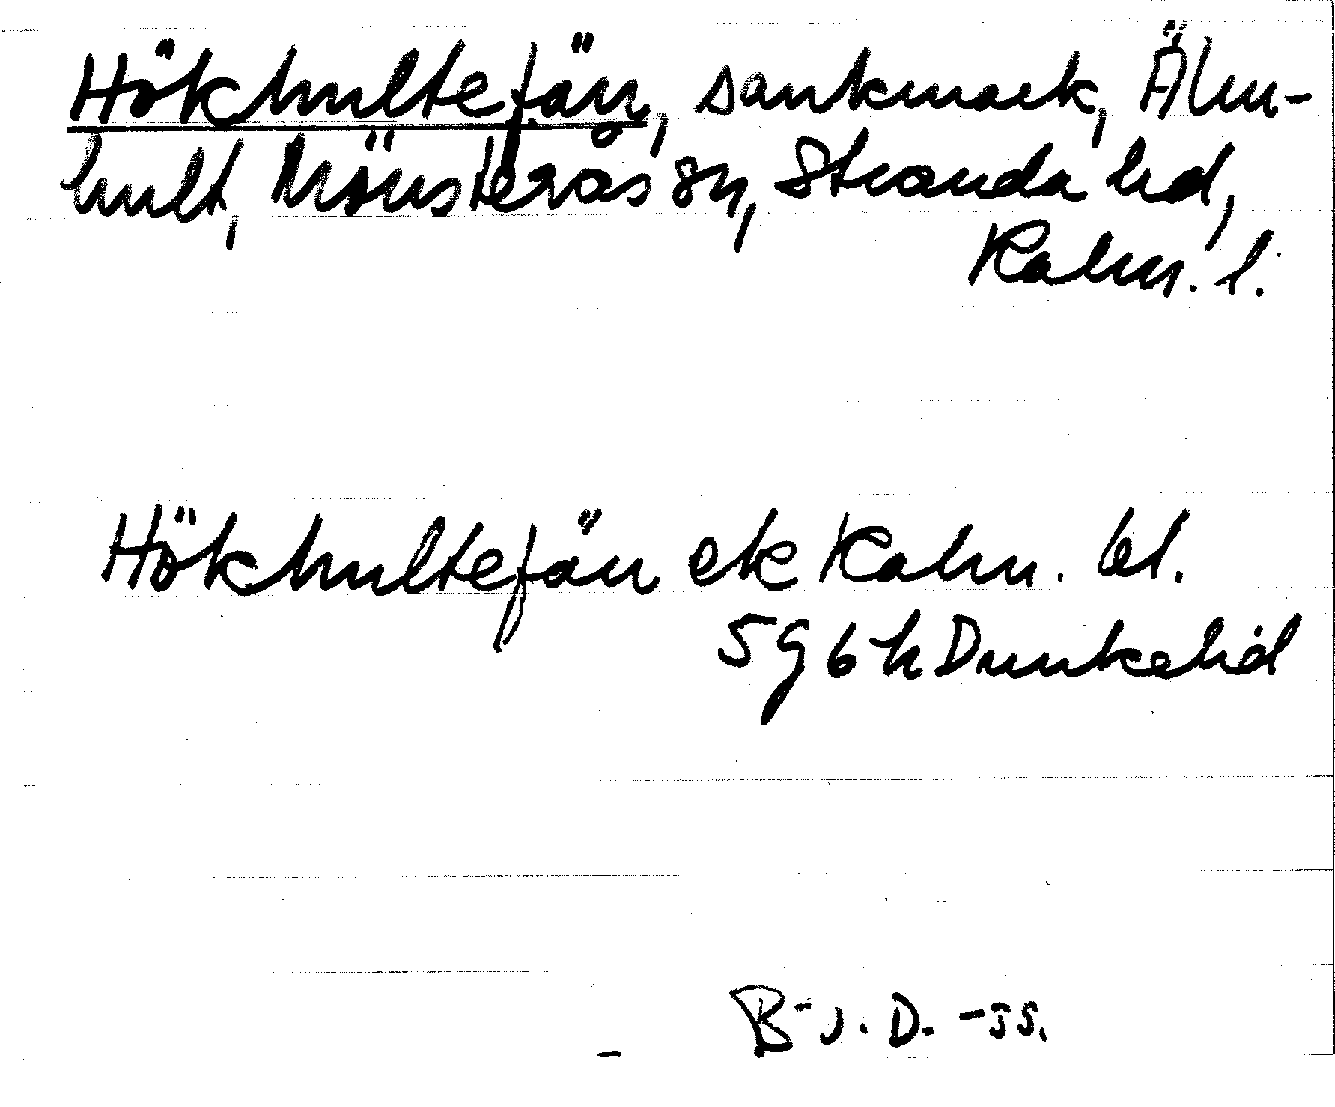 Hökhultefän, sankmark, Älm-
hult, Mönsterås sn, Stranda hd,
Kalm. l.
Hökhultefän ek Kalm. bl.
5 G 6 h Dunkehid
B-J. D. -55.